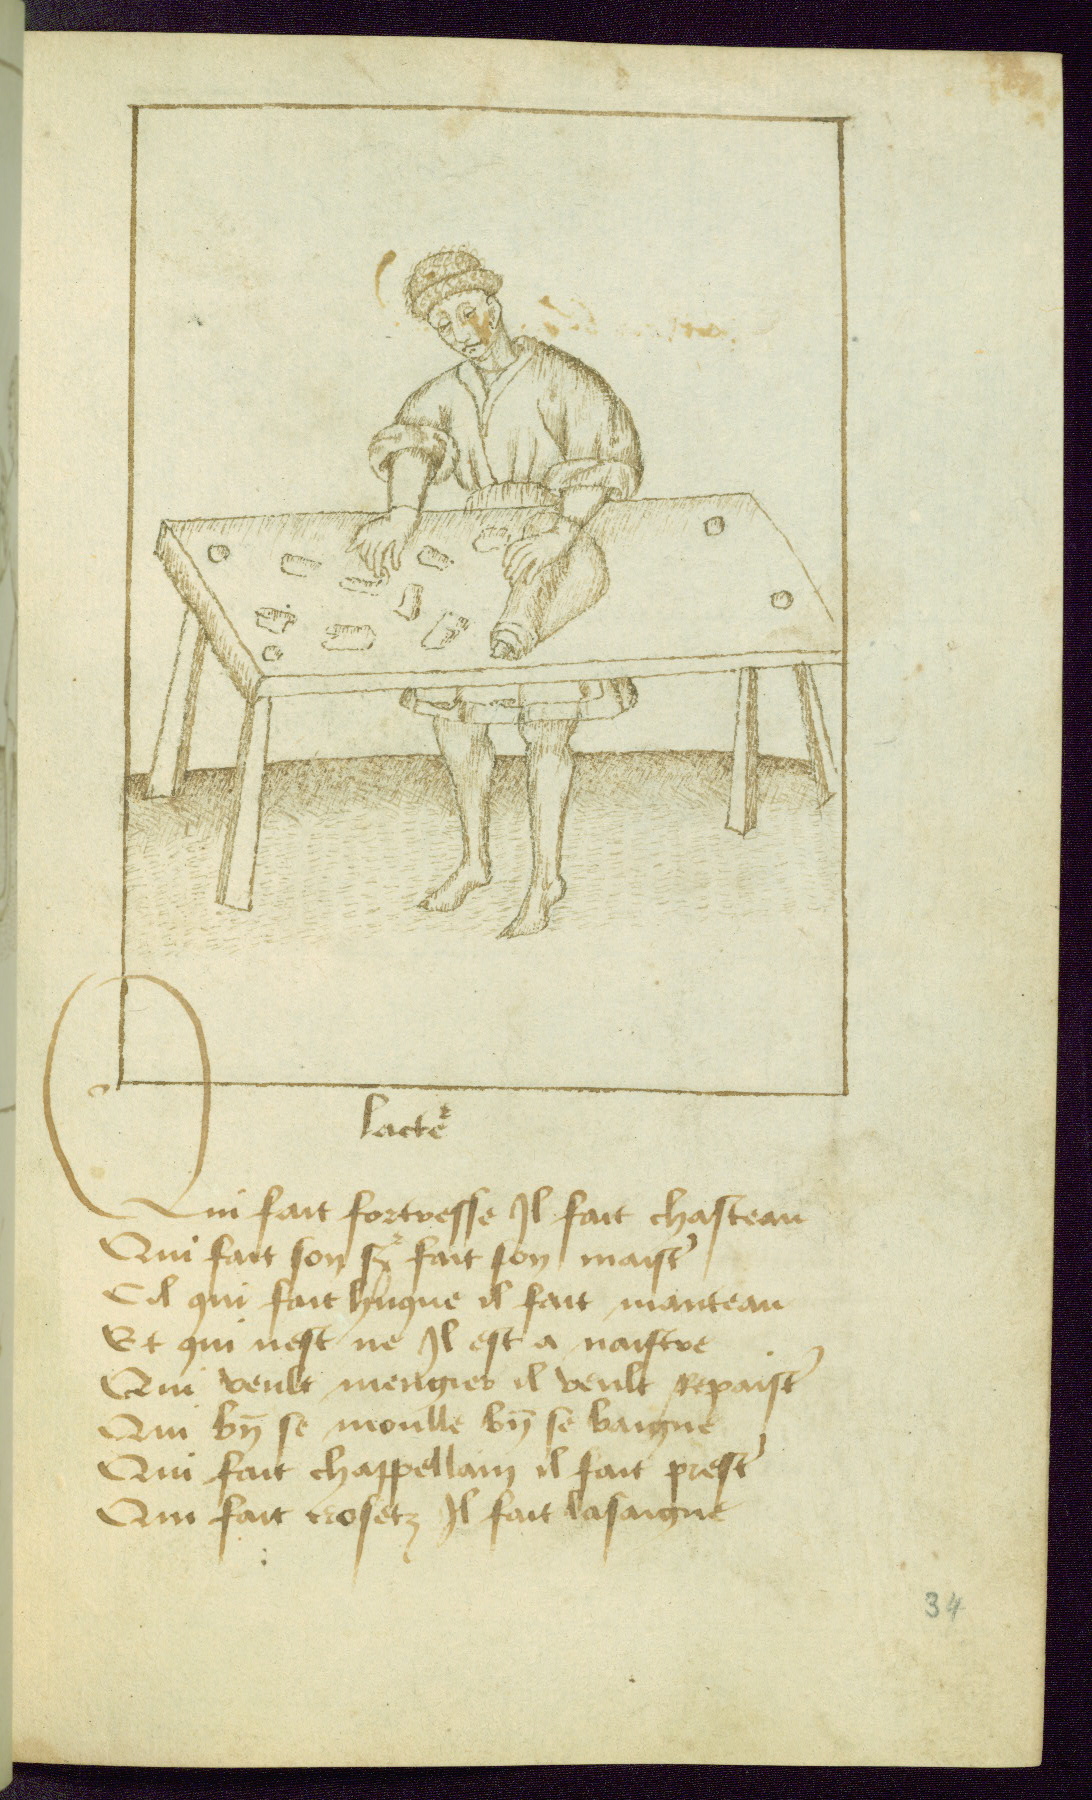 lacteᷣ
Qui fait fortresse Il fait chasteau
Qui fait son sr̄ fait son maist'
Cil qui fait huque il fait manteau
Et qui nest ne Il est a naistre
Qui veult mengier il veult Repaist'
Qui bn̄ se moulle bn̄ se baigne
Qui fait chappellain il fait prest'
Qui fait crosetz Il fait lasaigne
34